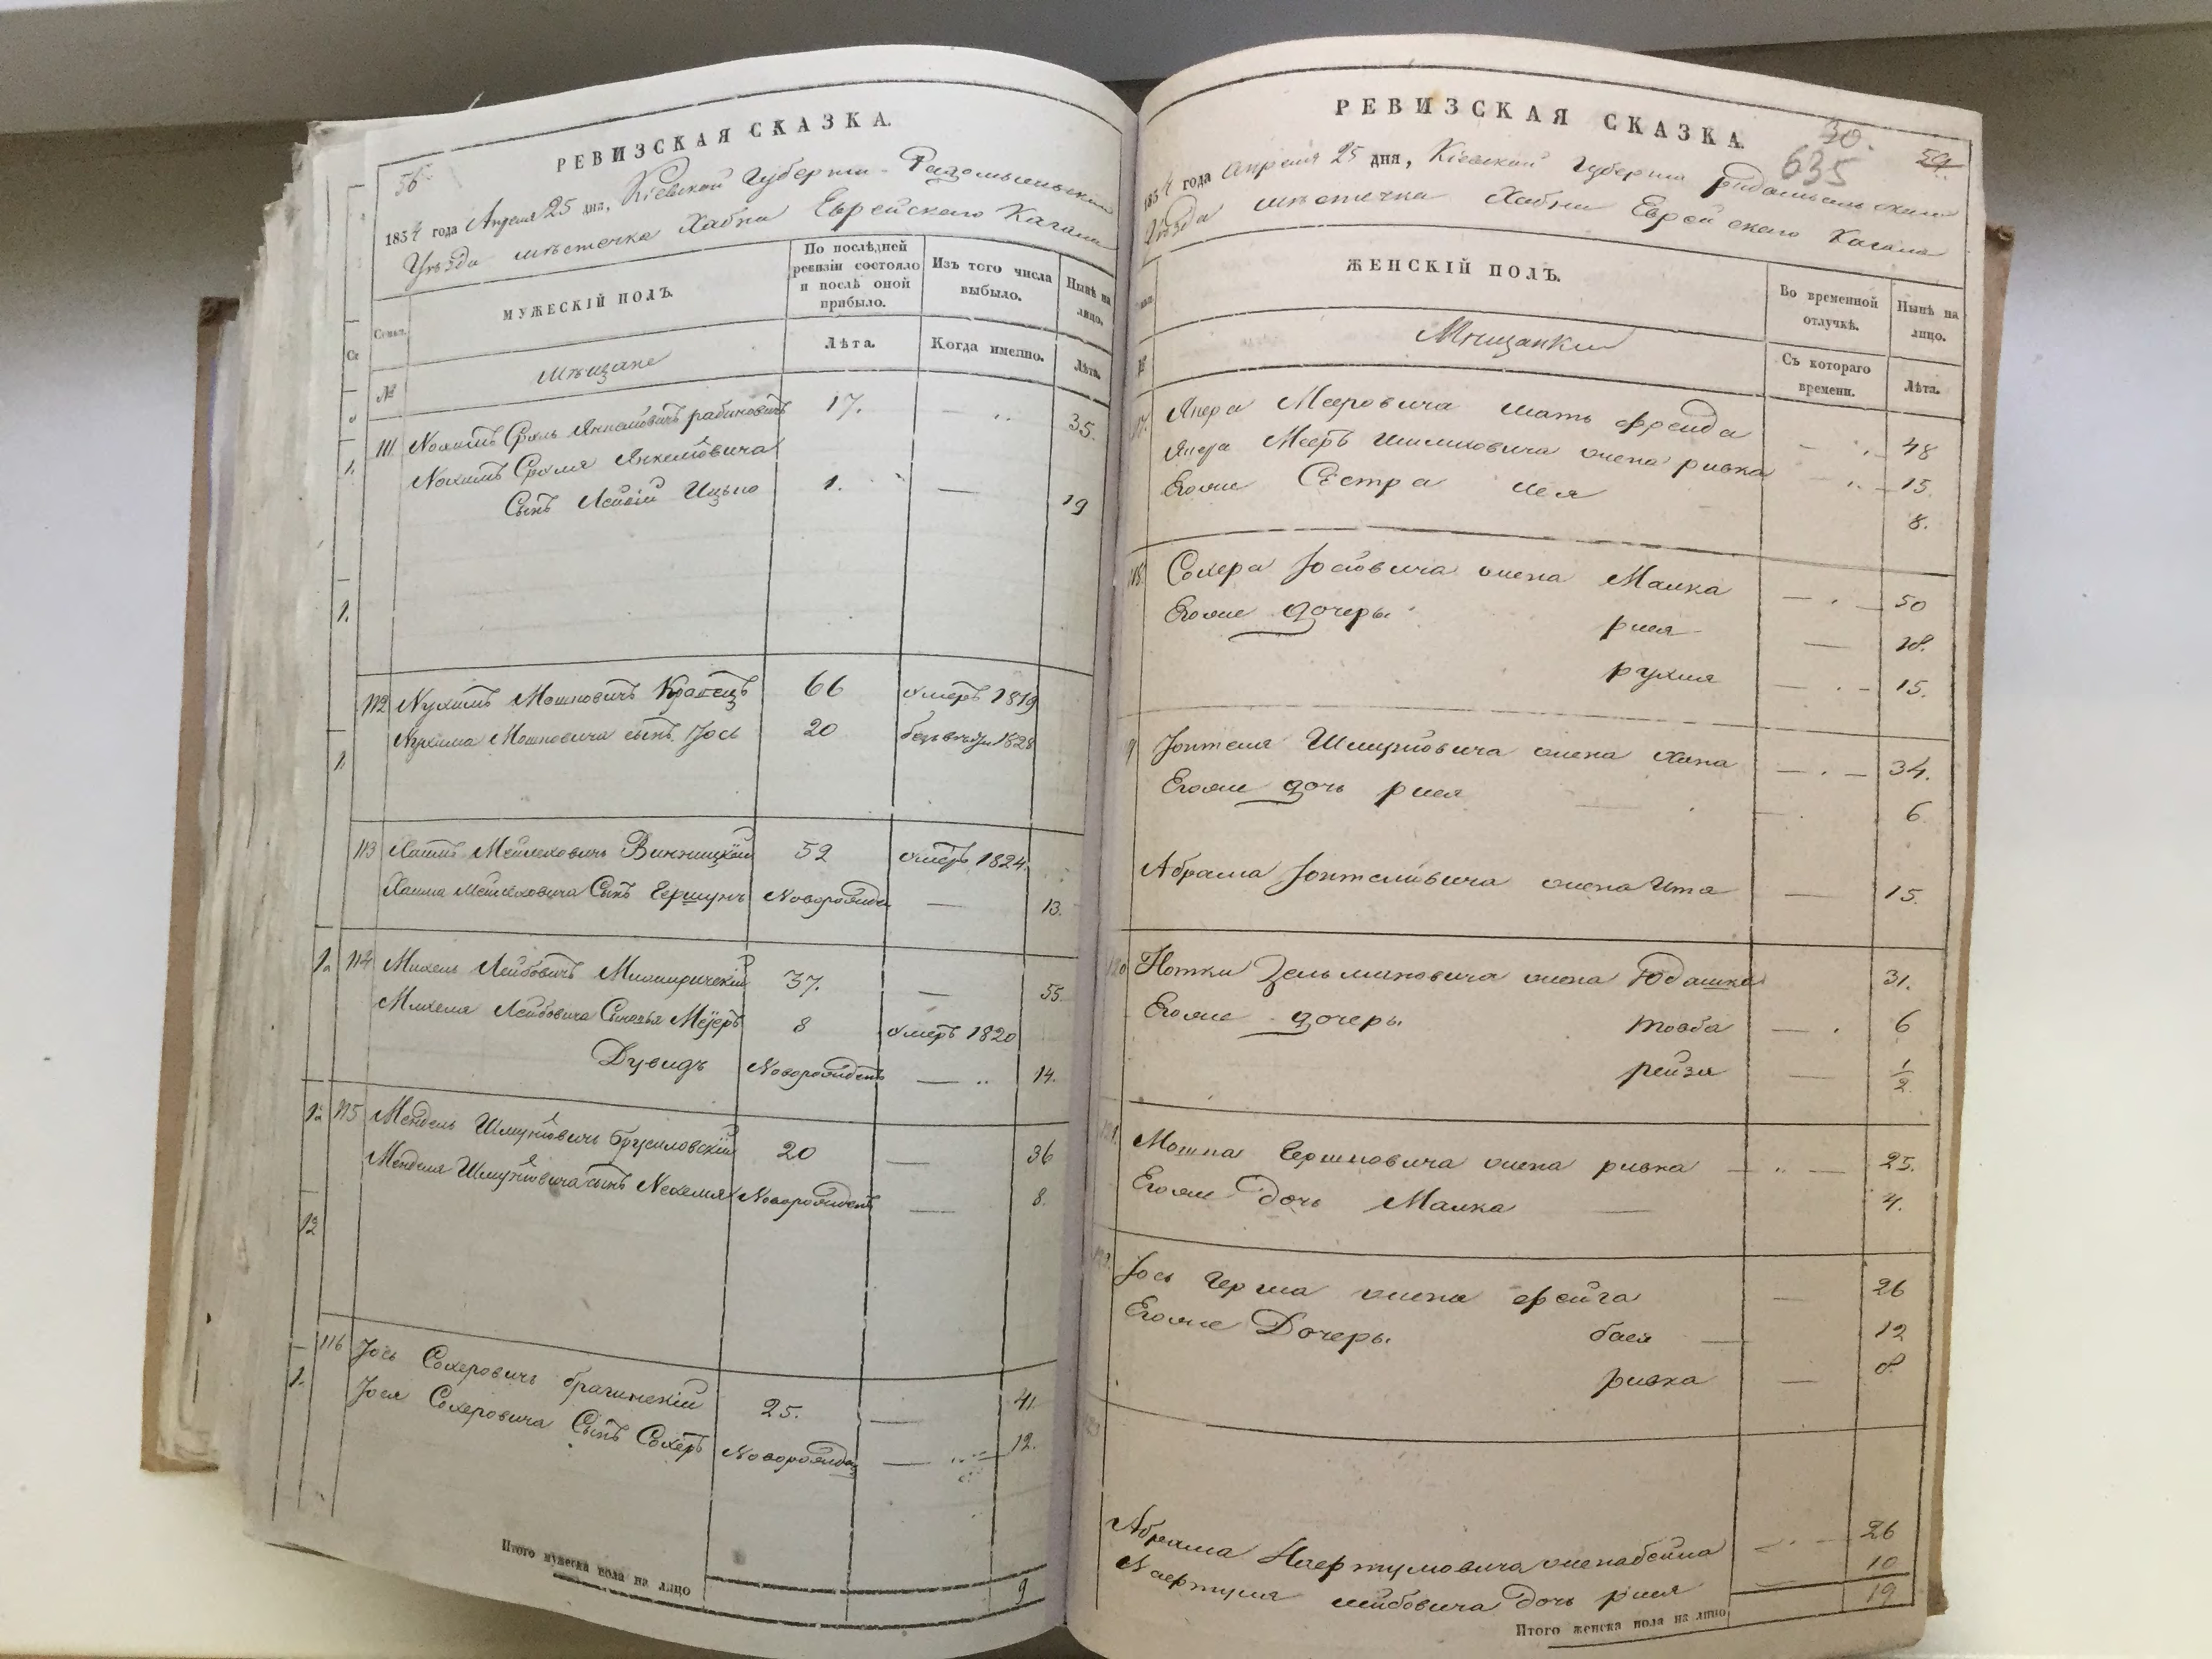 РЕВИЗСКАЯ СКАЗКА.
56
1854 года Апреля 25 дня, Кіевской Губерніи Радомысльскаго
Уѣзда мѣстечка Хабна Еврейскаго Кагала
Семьи.
МУЖЕСКІЙ ПОЛЪ.
По послѣдней ревизіи состояло и послѣ оной прибыло.
Изъ того числа выбыло.
Нынѣ на лицо.
№
мѣщане
Лѣта.
Когда именно.
Лѣта.
111 Нохимъ Сроль Янкелевичъ рабиновичъ 17. — 35.
Нохимъ Сроля Янкелевича
Сынъ Лейбъ Ицько 1. — 19
112 Нухимъ Мошковичъ Кравецъ 66 умеръ 1819
Нухима Мошковича сынъ Іось 20 1828
113 Хаимъ Мейлеховичъ Винницкій 52 умеръ 1824.
Хаима Мейлеховича Сынъ Гершунъ Новорожден — 13.
114 Михель Лейбовичъ 37. — 55.
Михеля Лейбовича Сыновья Мейеръ 8 умеръ 1820
Дувидъ Новорожденъ — 14.
115 Мендель Шмулевичъ Брусиловскій 20 — 36
Менделя Шмулевича сынъ Нехемья Новорожденъ — 8.
116 Іось Сохеровичъ брагинскій 25. — 41.
Іося Сохеровича Сынъ Сохеръ Новорожден — 12.
Итого мужеска пола на лицо 9
РЕВИЗСКАЯ СКАЗКА.
30.
635
1854 года Апреля 25 дня, Кіевской Губерніи радомысльскаго
Уѣзда мѣстечка Хабна Еврейскаго Кагала
ЖЕНСКІЙ ПОЛЪ.
Во временной отлучкѣ.
Нынѣ на лицо.
№
Мѣщанки
Съ котораго времени.
Лѣта.
Мееровича мать фрейда — 48
Мееръ жена ривка — 15.
Егоже Сестра Лея 8.
118. Сохера Іосевича жена Малка — 50
Егоже дочеры рися — 18.
рухля — 15.
Іонтеля Шмулевича жена Хана — 34.
Егоже дочь рися — 6
Абрама Іонтелевича жена Ита — 15.
120 Нотки Зельмановича жена Юдашка 31.
Егоже дочеры товба — 6
рейзя — 1/2
121. Мошка Гершковича жена ривка — 25.
Егоже дочь Малка — 4.
Іось Герша жена фейга — 26
Егоже Дочеры бася — 12
ривка — 8
Абрама жена бейла — 26
Лейбовича дочь рися 10
Итого женска пола на лицо 19